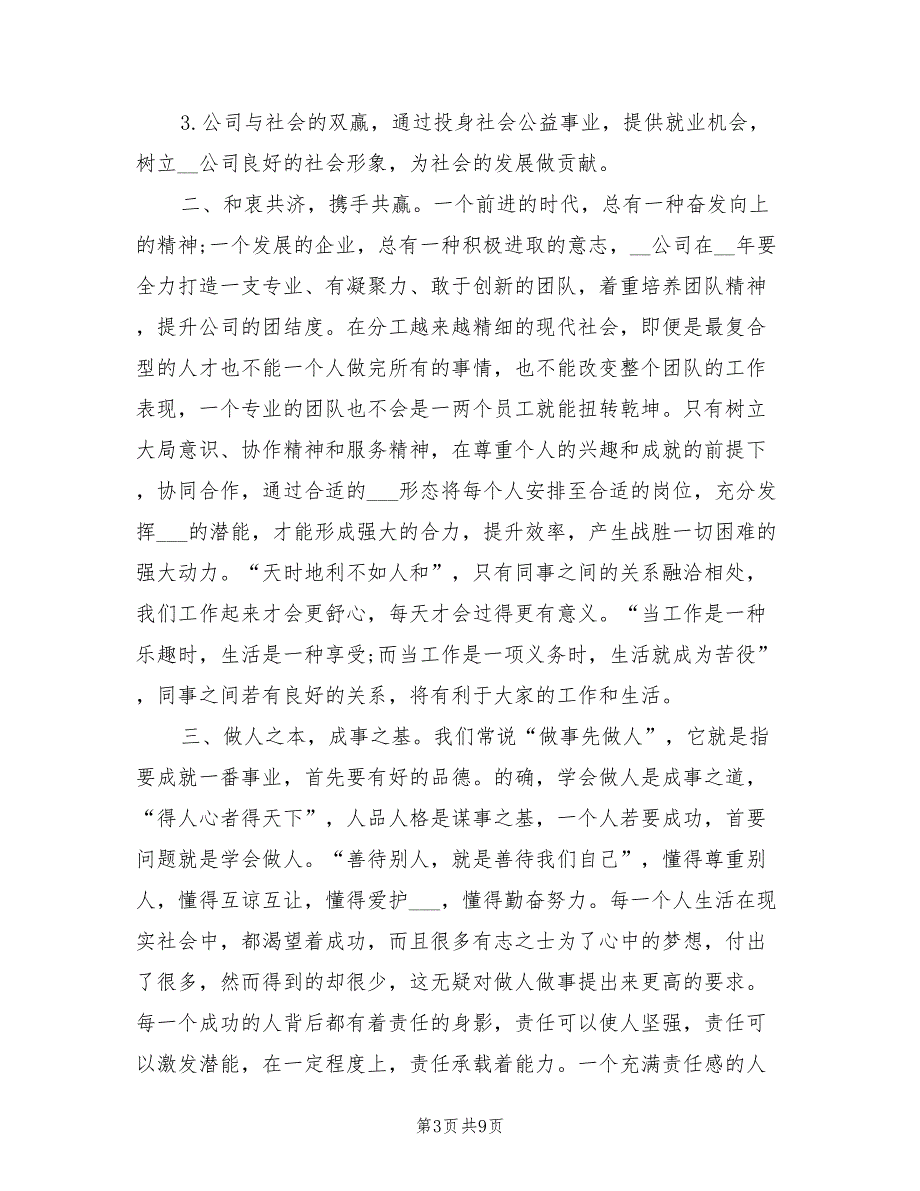 3.公司与社会的双赢，通过投身社会公益事业，提供就业机会，
树立__公司良好的社会形象，为社会的发展做贡献。
二、和衷共济，携手共赢。一个前进的时代，总有一种奋发向上
的精神;一个发展的企业，总有一种积极进取的意志，__公司在__年要
全力打造一支专业、有凝聚力、敢于创新的团队，着重培养团队精神
，提升公司的团结度。在分工越来越精细的现代社会，即便是最复合
型的人才也不能一个人做完所有的事情，也不能改变整个团队的工作
表现，一个专业的团队也不会是一两个员工就能扭转乾坤。只有树立
大局意识、协作精神和服务精神，在尊重个人的兴趣和成就的前提下
，协同合作，通过合适的___形态将每个人安排至合适的岗位，充分发
挥___的潜能，才能形成强大的合力，提升效率，产生战胜一切困难的
强大动力。“天时地利不如人和”，只有同事之间的关系融洽相处，
我们工作起来才会更舒心，每天才会过得更有意义。“当工作是一种
乐趣时，生活是一种享受;而当工作是一项义务时，生活就成为苦役”
，同事之间若有良好的关系，将有利于大家的工作和生活。
三、做人之本，成事之基。我们常说“做事先做人”，它就是指
要成就一番事业，首先要有好的品德。的确，学会做人是成事之道，
“得人心者得天下”，人品人格是谋事之基，一个人若要成功，首要
问题就是学会做人。“善待别人，就是善待我们自己”，懂得尊重别
人，懂得互谅互让，懂得爱护___，懂得勤奋努力。每一个人生活在现
实社会中，都渴望着成功，而且很多有志之士为了心中的梦想，付出
了很多，然而得到的却很少，这无疑对做人做事提出来更高的要求。
每一个成功的人背后都有着责任的身影，责任可以使人坚强，责任可
以激发潜能，在一定程度上，责任承载着能力。一个充满责任感的人
第3页 共9页